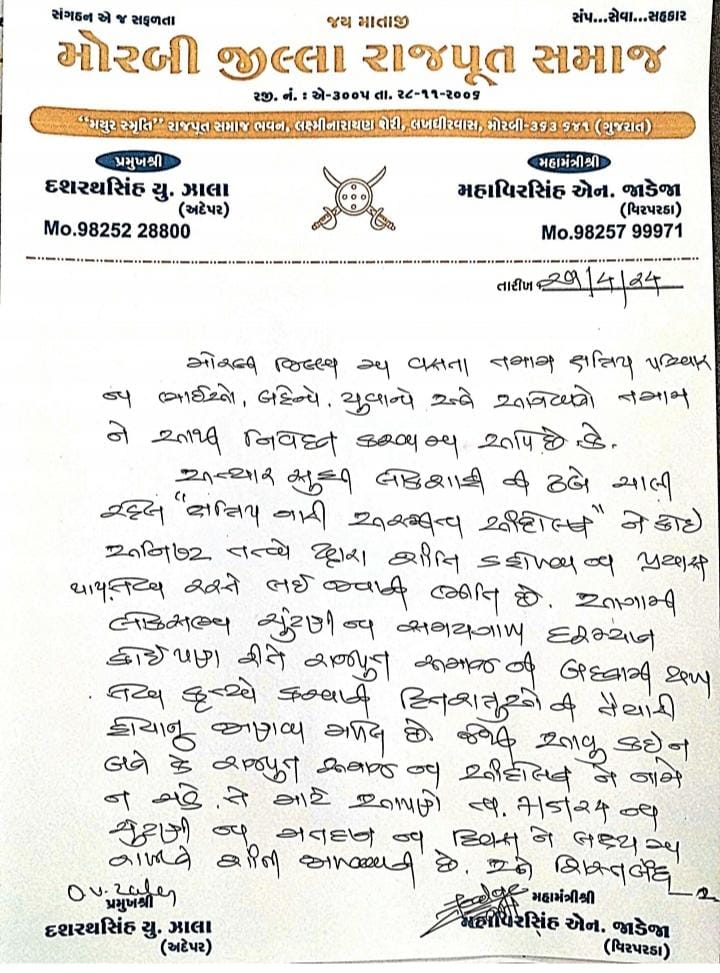 સંગઠન એ જ સફળતા
જય માતાજી
સંપ...સેવા...સહકાર
મોરબી જીલ્લા રાજપૂત સમાજ
રજી. નં. : એ-૩૦૦૫ તા. ૨૮-૧૧-૨૦૦૬
"મયુર સ્મૃતિ" રાજપૂત સમાજ ભવન, લક્ષ્મીનારાયણ શેરી, લખધીરવાસ, મોરબી-૩૬૩ ૬૪૧ (ગુજરાત)
પ્રમુખશ્રી
દશરથસિંહ યુ. ઝાલા
(અટેપર)
Mo.98252 28800
મહામંત્રીશ્રી
મહાવિરસિંહ એન. જાડેજા
(વિરપરડા)
Mo.98257 99971
તારીખ ૨૭/4/૨4
મોરબી જિલ્લા મા વસતા તમામ ક્ષત્રિય પરિવાર
ના ભાઈઓ, બહેનો, યુવાનો અને તમામ
ને આથી નિવેદન કરવામા આવે છે. કે.
અત્યાર સુધી લોકશાહી ની ઢબે ચાલી
રહેલ "ક્ષત્રિય નારી અસ્મિતા આંદોલન" ને કોઈ
તત્વો દ્વારા શાંતિ ના પ્રયાસ
રસ્તે લઈ જવાની ભીતિ છે. આગામી
લોકસભા ચુંટણી ના સમયગાળા દરમ્યાન
કોઈ પણ રીતે રાજપુત સમાજ ની બદનામી થાય
તેવા કૃત્યો કરવાની ની તૈયારી
હોવાનુ જાણવા મળેલ છે. જેથી આવુ કંઈ ન
બને કે રાજપુત સમાજ ના આંદોલન ને નામે
ન ચડે. તે માટે આપણે તા. 7/5/૨4 ના
ચુંટણી ના મતદાન ના દિવસ ને લક્ષ્ય મા
રાખીને શાંતી છે. અને
પ્રમુખશ્રી
દશરથસિંહ યુ. ઝાલા
(અટેપર)
મહામંત્રીશ્રી
મહાવિરસિંહ એન. જાડેજા
(વિરપરડા)